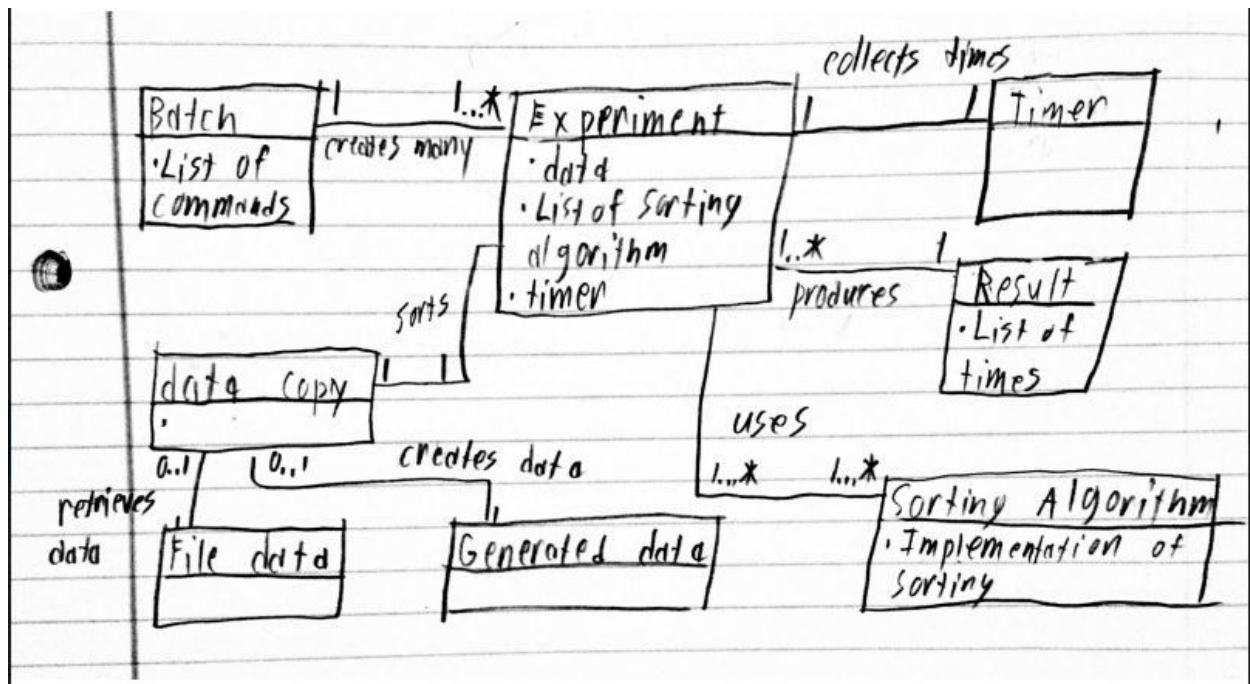 collects times
Batch
1
1...*
Experiment
1
1
Timer
creates many
• List of
commands
• data
• List of sorting
algorithm
• timer
1..*
1
produces
Result
• List of
times
sorts
data copy
1
1
•
uses
0..1
0..1
creates data
1...*
1...*
retrieves
data
1
1
File data
Generated data
Sorting Algorithm
• Implementation of
sorting